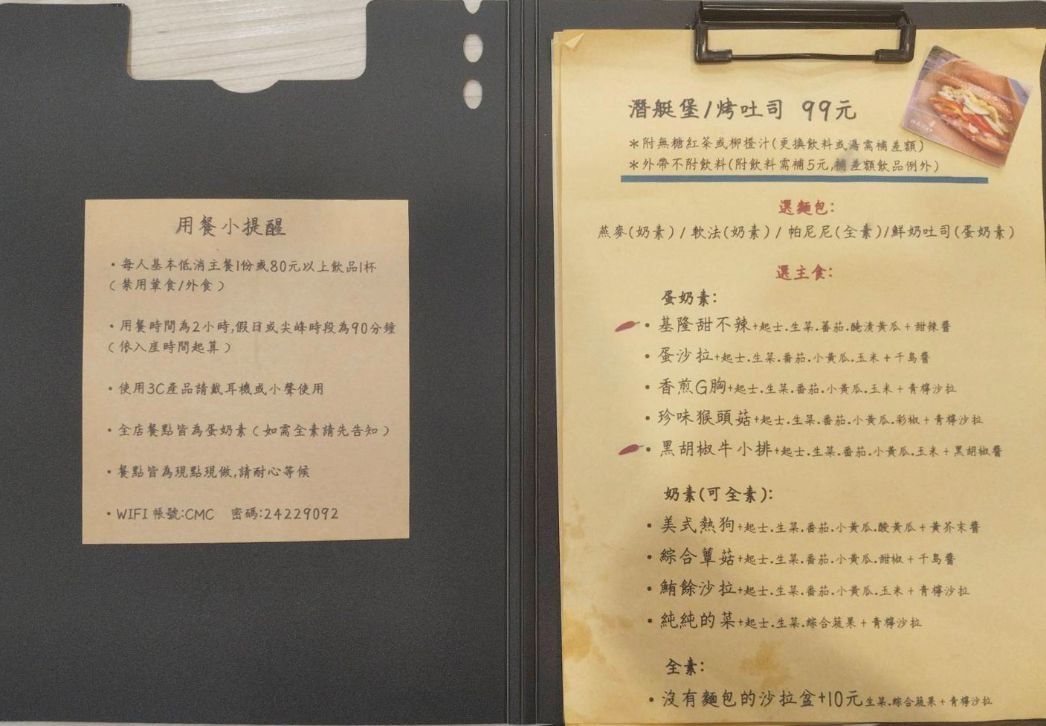 用餐小提醒
・每人基本低消主餐1份或80元以上飲品1杯
(禁用葷食/外食)
・用餐時間為2小時,假日或尖峰時段為90分鐘
(依入座時間起算)
・使用3C產品請戴耳機或小聲使用
・全店餐點皆為蛋奶素(如需全素請先告知)
・餐點皆為現點現做,請耐心等候
・WIFI 帳號:CMC 密碼:24229092
潛艇堡/烤吐司 99元
*附無糖紅茶或柳橙汁(更換飲料或湯需補差額)
*外帶不附飲料(附飲料需補5元,補差額飲品例外)
選麵包:
燕麥(奶素)/軟法(奶素)/帕尼尼(全素)/鮮奶吐司(蛋奶素)
選主食:
蛋奶素:
・基隆甜不辣+起士.生菜.蕃茄.醃漬黃瓜+甜辣醬
・蛋沙拉+起士.生菜.番茄.小黃瓜.玉米+千島醬
・香煎G胸+起士.生菜.番茄.小黃瓜.玉米+青檸沙拉
・珍味猴頭菇+起士.生菜.番茄.小黃瓜.彩椒+青檸沙拉
・黑胡椒牛小排+起士.生菜.番茄.小黃瓜.玉米+黑胡椒醬
奶素(可全素):
・美式熱狗+起士.生菜.番茄.小黃瓜.酸黃瓜+黃芥末醬
・綜合蕈菇+起士.生菜.番茄.小黃瓜.甜椒+千島醬
・鮪餘沙拉+起士.生菜.番茄.小黃瓜.玉米+青檸沙拉
・純純的菜+起士.生菜.綜合蔬果+青檸沙拉
全素:
・沒有麵包的沙拉盆+10元生菜.綜合蔬果+青檸沙拉